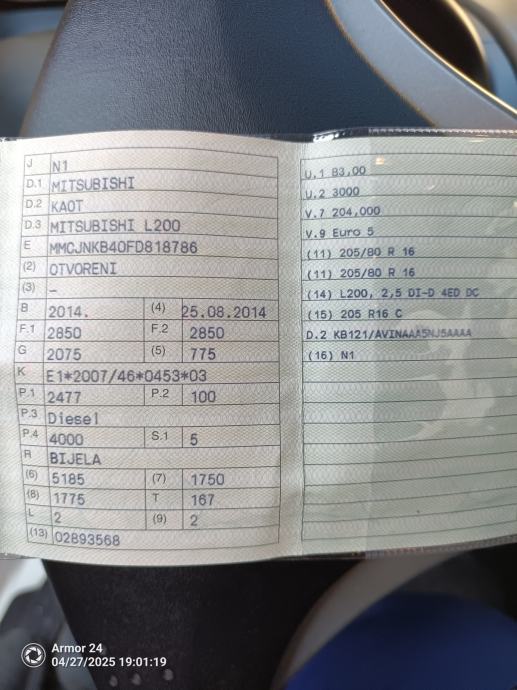 J N1
D.1 MITSUBISHI
D.2 KAOT
D.3 MITSUBISHI L200
E MMCJNKB40FD818786
(2) OTVORENI
(3) –
B 2014. (4) 25.08.2014
F.1 2850 F.2 2850
G 2075 (5) 775
K E1*2007/46*0453*03
P.1 2477 P.2 100
P.3 Diesel
P.4 4000 S.1 5
R BIJELA
(6) 5185 (7) 1750
(8) 1775 T 167
L 2 (9) 2
(13) 02893568
U.1 83,00
U.2 3000
V.7 204,000
V.9 Euro 5
(11) 205/80 R 16
(11) 205/80 R 16
(14) L200, 2,5 DI-D 4ED DC
(15) 205 R16 C
D.2 KB121/AVINAAA5NJ5AAAA
(16) N1
Armor 24
04/27/2025 19:01:19